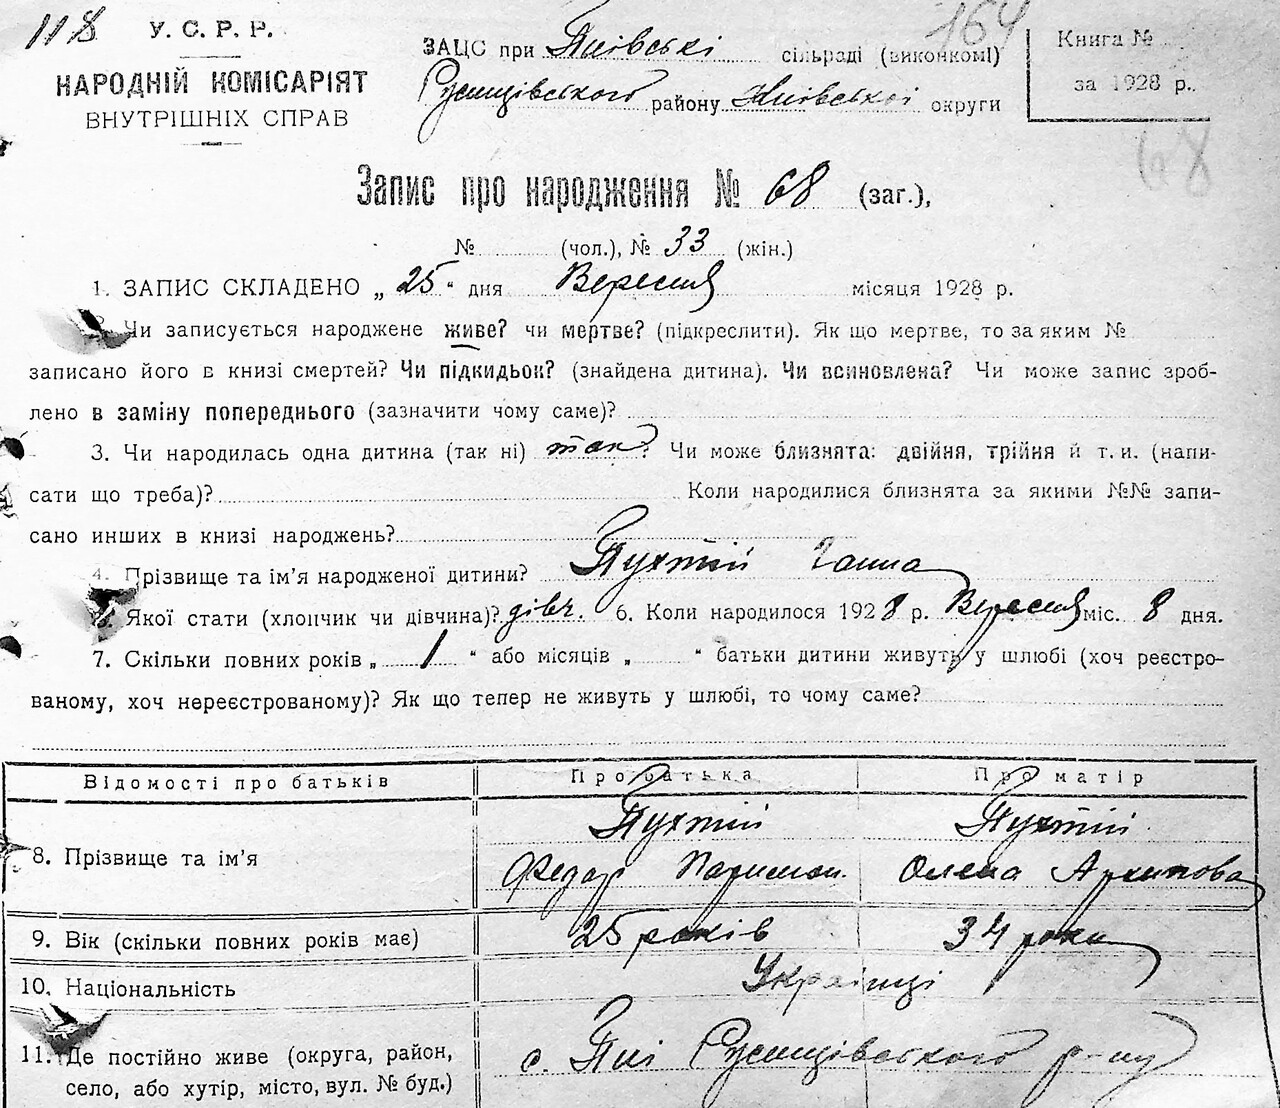 118
164
У. С. Р. Р.
НАРОДНІЙ КОМІСАРІЯТ
ВНУТРІШНІХ СПРАВ
ЗАЦС при Пиївські сільраді (виконкомі)
району Київської округи
Книга №
за 1928 р.
68
Запис про народження № 68 (заг.),
№ (чол.), № 33 (жін.)
1. ЗАПИС СКЛАДЕНО „ 25 “ дня Вересня місяця 1928 р.
Чи записується народжене живе? чи мертве? (підкреслити). Як що мертве, то за яким №
записано його в книзі смертей? Чи підкидьок? (знайдена дитина). Чи всиновлена? Чи може запис зроб-
лено в заміну попереднього (зазначити чому саме)?
3. Чи народилась одна дитина (так ні) так? Чи може близнята: двійня, трійня й т. и. (напи-
сати що треба)? Коли народилися близнята за якими №№ запи-
сано инших в книзі народжень?
4. Прізвище та ім’я народженої дитини? Пухтій Ганна
Якої стати (хлопчик чи дівчина)? дівч. 6. Коли народилося 1928 р. Вересня міс. 8 дня.
7. Скільки повних років „ 1 “ або місяців „ “ батьки дитини живуть у шлюбі (хоч реєстро-
ваному, хоч нереєстрованому)? Як що тепер не живуть у шлюбі, то чому саме?
Відомості про батьків Про батька Про матір
8. Прізвище та ім’я Пухтій Пухтій
Федор Олена Архипова
9. Вік (скільки повних років має) 25 років 34 роки
10. Національність Українці
11. Де постійно живе (округа, район, с. Пиї р-ну
село, або хутір, місто, вул. № буд.)